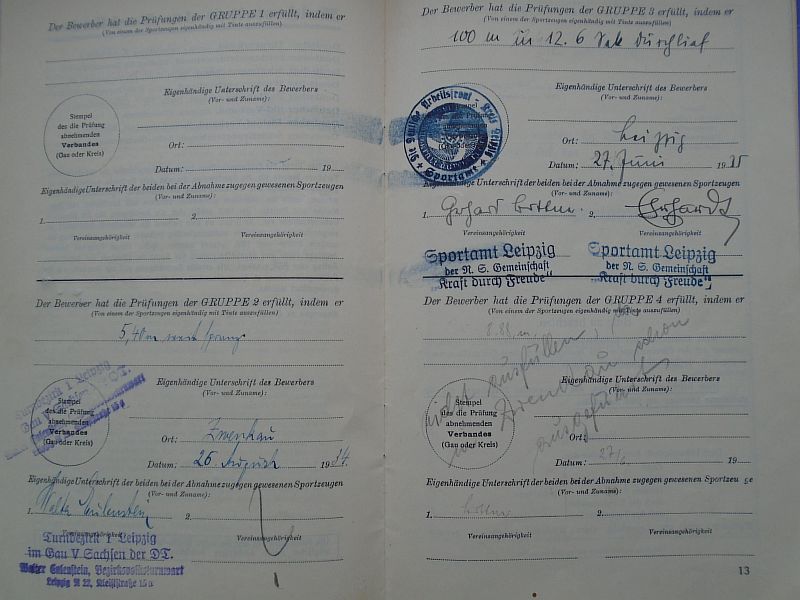 Der Bewerber hat die Prüfungen der GRUPPE 1 erfüllt, indem er
(Von einem der Sportzeugen eigenhändig mit Tinte auszufüllen)
Eigenhändige Unterschrift des Bewerbers
(Vor- und Zuname):
Stempel
des die Prüfung
abnehmenden
Verbandes
(Gau oder Kreis)
Ort:
Datum: 19
Eigenhändige Unterschrift der beiden bei der Abnahme zugegen gewesenen Sportzeugen
(Vor- und Zuname):
1. 2.
Vereinsangehörigkeit
Der Bewerber hat die Prüfungen der GRUPPE 2 erfüllt, indem er
(Von einem der Sportzeugen eigenhändig mit Tinte auszufüllen)
5,40 m
Eigenhändige Unterschrift des Bewerbers
(Vor- und Zuname):
Stempel
des die Prüfung
abnehmenden
Verbandes
(Gau oder Kreis)
Turnbezirk 1 Leipzig
Gau V
Ort: Zwenkau
Datum: 26. August 1934.
Eigenhändige Unterschrift der beiden bei der Abnahme zugegen gewesenen Sportzeugen
(Vor- und Zuname):
1. Walter Eulenstein 2.
Vereinsangehörigkeit
Vereinsangehörigkeit
Turnbezirk 1 Leipzig
im Gau V Sachsen der DT.
Walter Eulenstein, Bezirksvolksturnwart
Leipzig N 22,
Der Bewerber hat die Prüfungen der GRUPPE 3 erfüllt, indem er
(Von einem der Sportzeugen eigenhändig mit Tinte auszufüllen)
100 m in 12.6 Sek durchlief
Eigenhändige Unterschrift des Bewerbers
(Vor- und Zuname):
Die Deutsche Arbeitsfront · Kreis Leipzig
Sportamt
Ort: Leipzig
Datum: 27. Juni 1935
Eigenhändige Unterschrift der beiden bei der Abnahme zugegen gewesenen Sportzeugen
(Vor- und Zuname):
1. Gerhard 2.
Vereinsangehörigkeit Vereinsangehörigkeit
Sportamt Leipzig Sportamt Leipzig
der N. S. Gemeinschaft der N. S. Gemeinschaft
"Kraft durch Freude" "Kraft durch Freude"
Der Bewerber hat die Prüfungen der GRUPPE 4 erfüllt, indem er
(Von einem der Sportzeugen eigenhändig mit Tinte auszufüllen)
nicht ausfüllen,
schon
ausgeführt
Eigenhändige Unterschrift des Bewerbers
(Vor- und Zuname):
Stempel
des die Prüfung
abnehmenden
Verbandes
(Gau oder Kreis)
Ort:
Datum: 27/6 19
Eigenhändige Unterschrift der beiden bei der Abnahme zugegen gewesenen Sportzeugen
(Vor- und Zuname):
1. 2.
Vereinsangehörigkeit
13